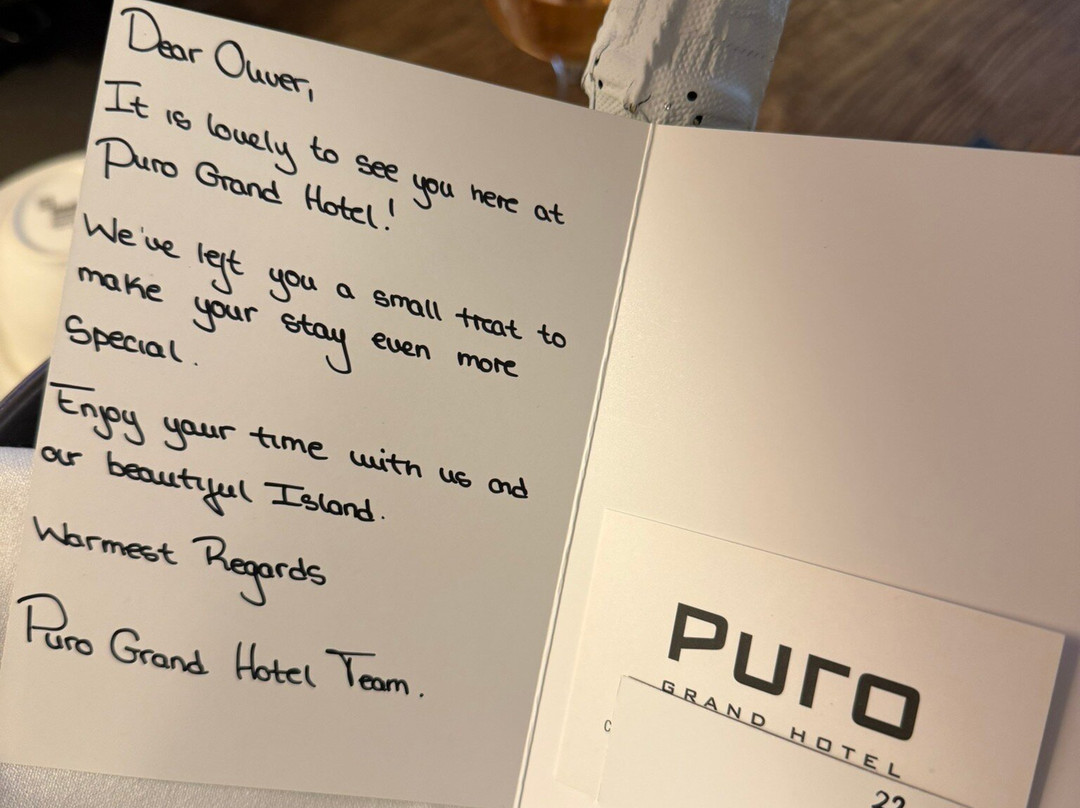 Dear Oliver,
It is lovely to see you here at
Puro Grand Hotel!
We've left you a small treat to
make your stay even more
Special.
Enjoy your time with us and
our beautiful Island.
Warmest Regards
Puro Grand Hotel Team.
Puro
GRAND HOTEL
C
22